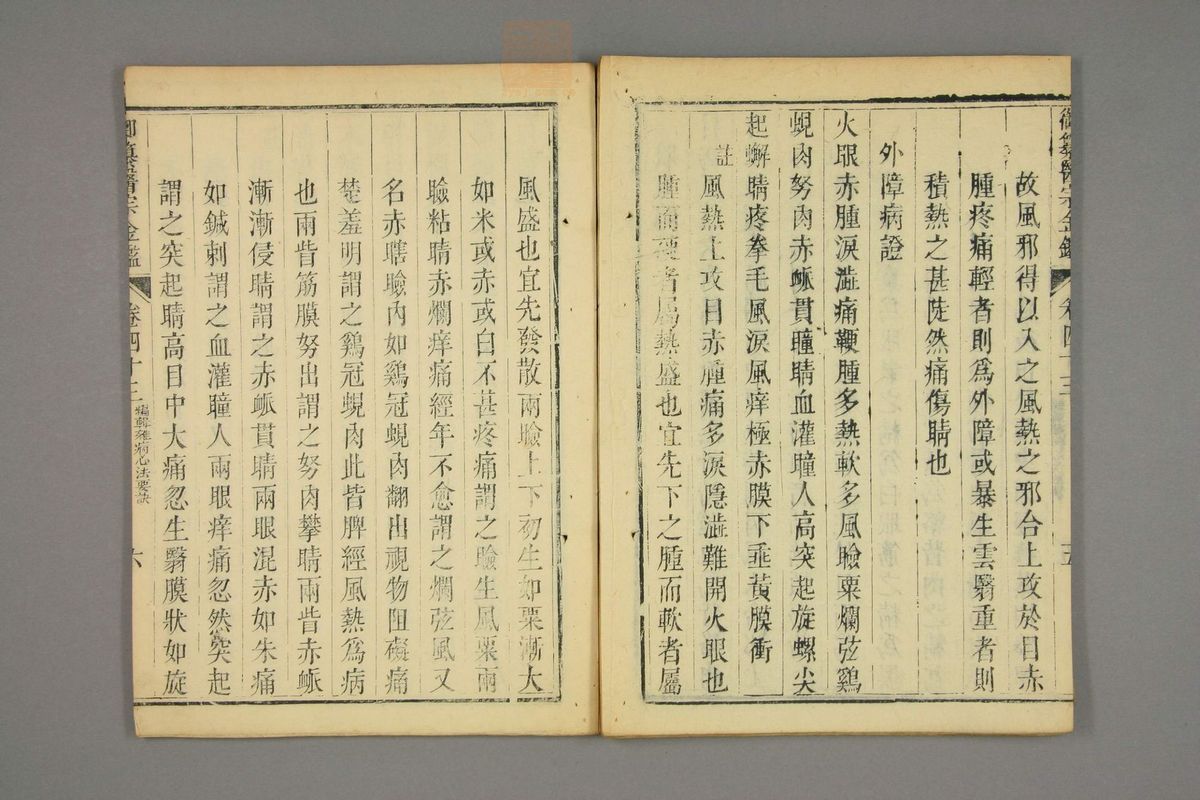 御纂醫宗金鑑 卷四十三 五
故風邪得以入之風熱之邪合上攻於目赤
腫疼痛輕者則爲外障或暴生雲翳重者則
積熱之甚陡然痛傷睛也
外障病證
火眼赤腫淚澁痛鞕腫多熱軟多風瞼粟爛弦鷄
蜆肉努肉赤脈貫瞳睛血灌瞳人高突起旋螺尖
起蠏睛疼拳毛風淚風痒極赤膜下垂黃膜衝
註風熱上攻目赤腫痛多淚隱澁難開火眼也
腫而硬者屬熱盛也宜先下之腫而軟者屬
風盛也宜先發散兩瞼上下初生如粟漸大
如米或赤或白不甚疼痛謂之瞼生風粟兩
瞼粘睛赤爛痒痛經年不愈謂之爛弦風又
名赤瞎瞼內如鷄冠蜆肉翻出視物阻礙痛
楚羞明謂之鷄冠蜆肉此皆脾經風熱爲病
也兩眥筋膜努出謂之努肉攀睛兩眥赤脈
漸漸侵睛謂之赤脈貫睛兩眼混赤如朱痛
如鍼刺謂之血灌瞳人兩眼痒痛忽然突起
謂之突起睛高目中大痛忽生翳膜狀如旋
御纂醫宗金鑑 卷四十三 編輯雜病心法要訣 六